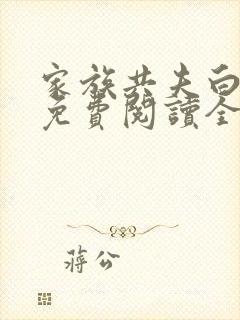 家族共夫白
免費閱讀全
蔣公